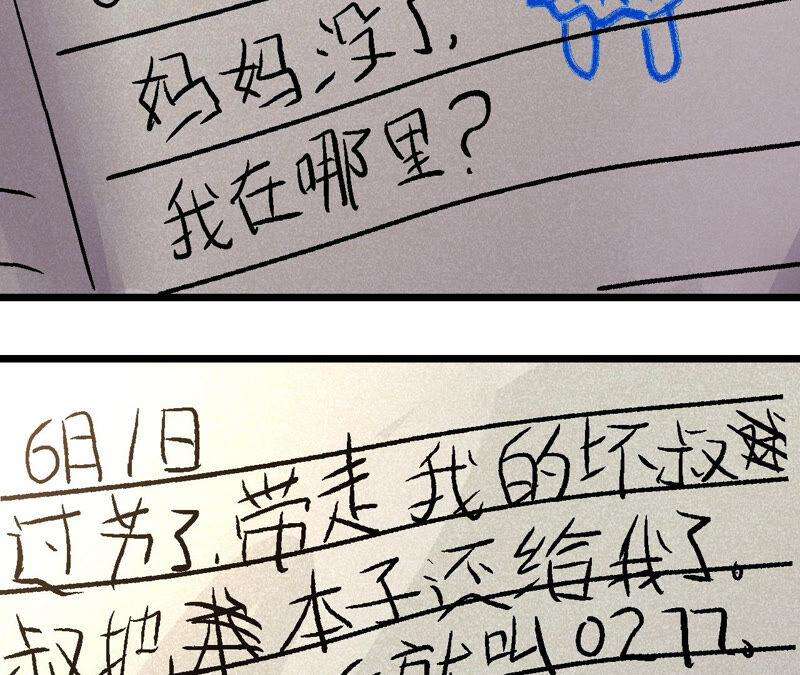 妈妈没了,
我在哪里?
6月1日
过节了,带走我的坏叔
叔把本子还给我了。
就叫0277。